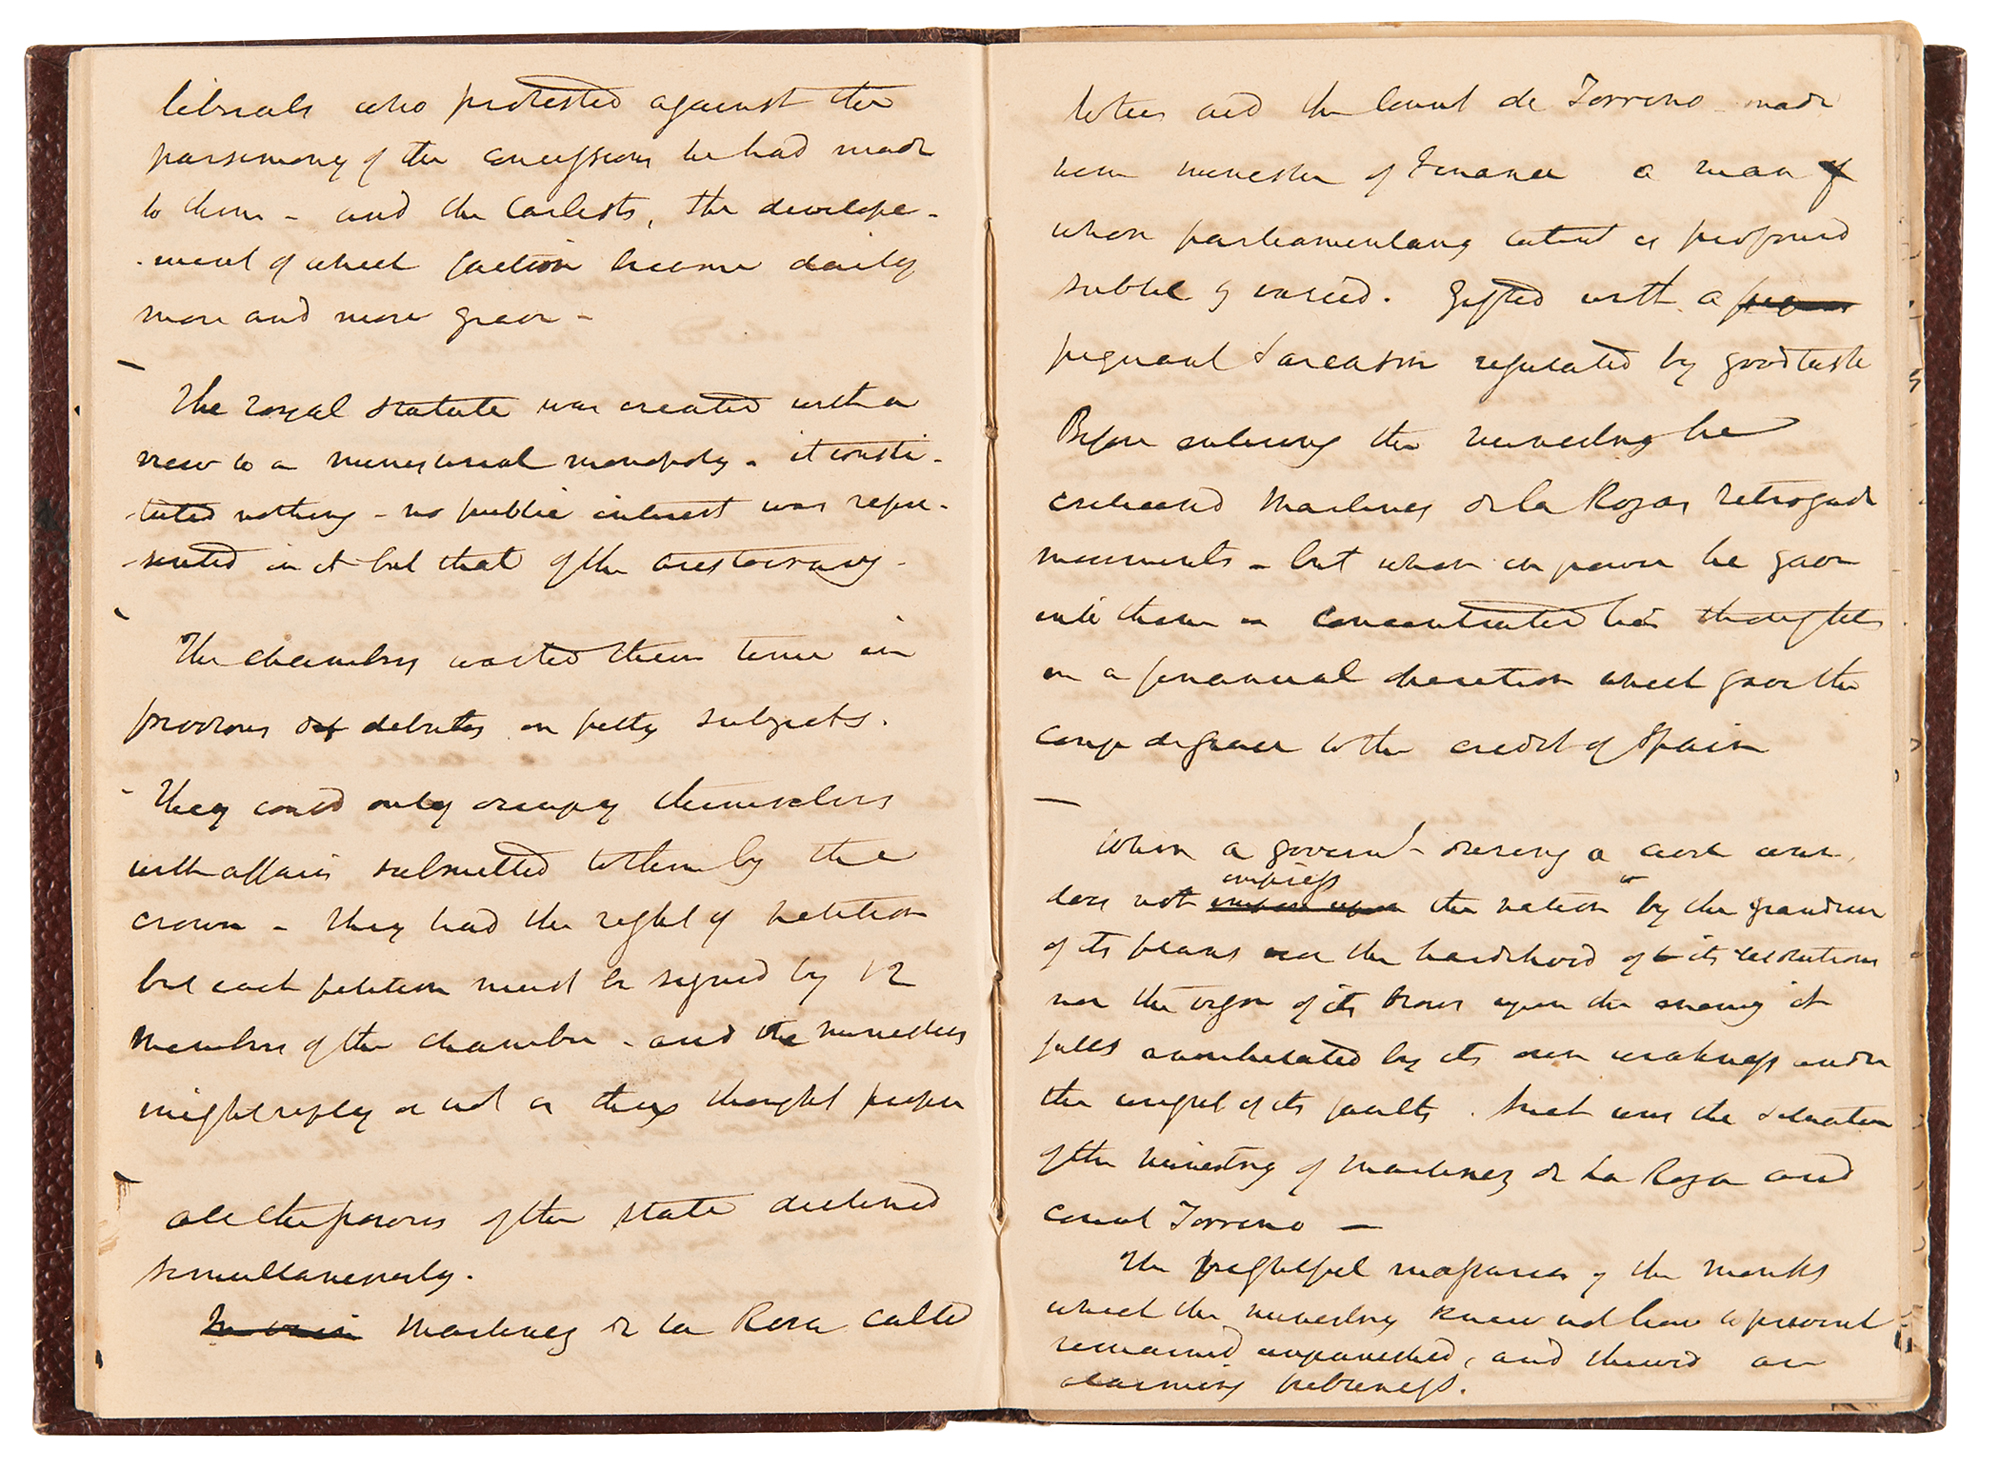 liberals who protested against the
parsimony of the concessions he had made
to them - and the Carlists, the develope-
-ment of which faction became daily
more and more grave -
The royal statute was created with a
view to a ministerial monopoly - it consti-
tuted nothing - no public interest was repre-
sented in it but that of the aristocracy -
The chambers wasted their time in
debates on petty subjects.
They could only occupy themselves
with affairs submitted to them by the
crown - they had the right of petition
but each petition must be signed by 12
members of the chamber - and the ministers
might reply or not as they thought proper
all the powers of the state declined
simultaneously.
In vain Martinez de la Rosa called
to him and the Count de Torreno - made
him minister of Finance a man of
whom parliamentary talent is profound
subtle & varied. Gifted with a
piquant sarcasm regulated by good taste
Before entering the ministry he
criticised Martinez de la Rozas retrograde
movements - but when in power he gave
into them - concentrated his thoughts
on a financial direction which gave the
coup de grace to the credit of Spain
When a governt - during a civil war,
impress
does not the nation by the grandeur
of its plans nor the hardihood of its resolutions
nor the vigor of its blows upon the enemy it
falls annihilated by its own weakness under
the weight of its faults. Such was the situation
of the ministry of Martinez de la Roza and
count Torreno -
The frightful massacres of the monks
which the ministry knew not how to prevent
remained unpunished, and shewed an
alarming feebleness.